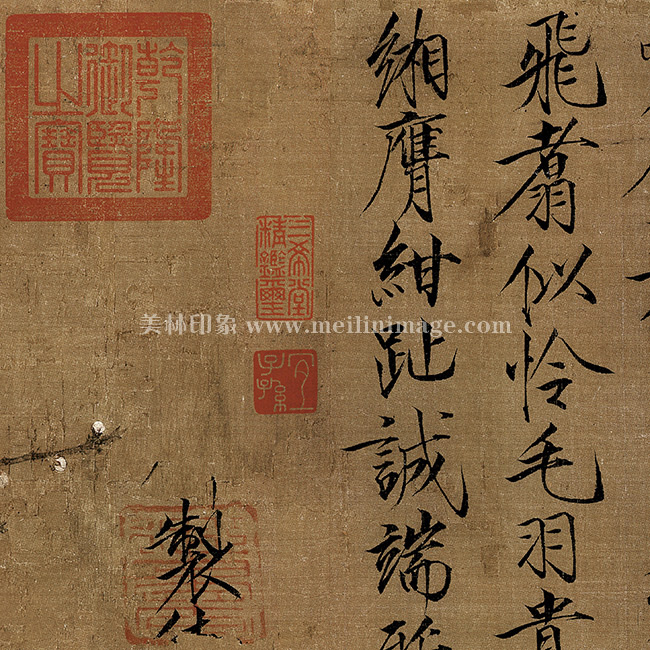 飛翥似怜毛羽貴
緗膺紺趾誠端
製
乾隆御覽之寶
三希堂精鑑璽
宜子孫
美林印象 www.meilinimage.com